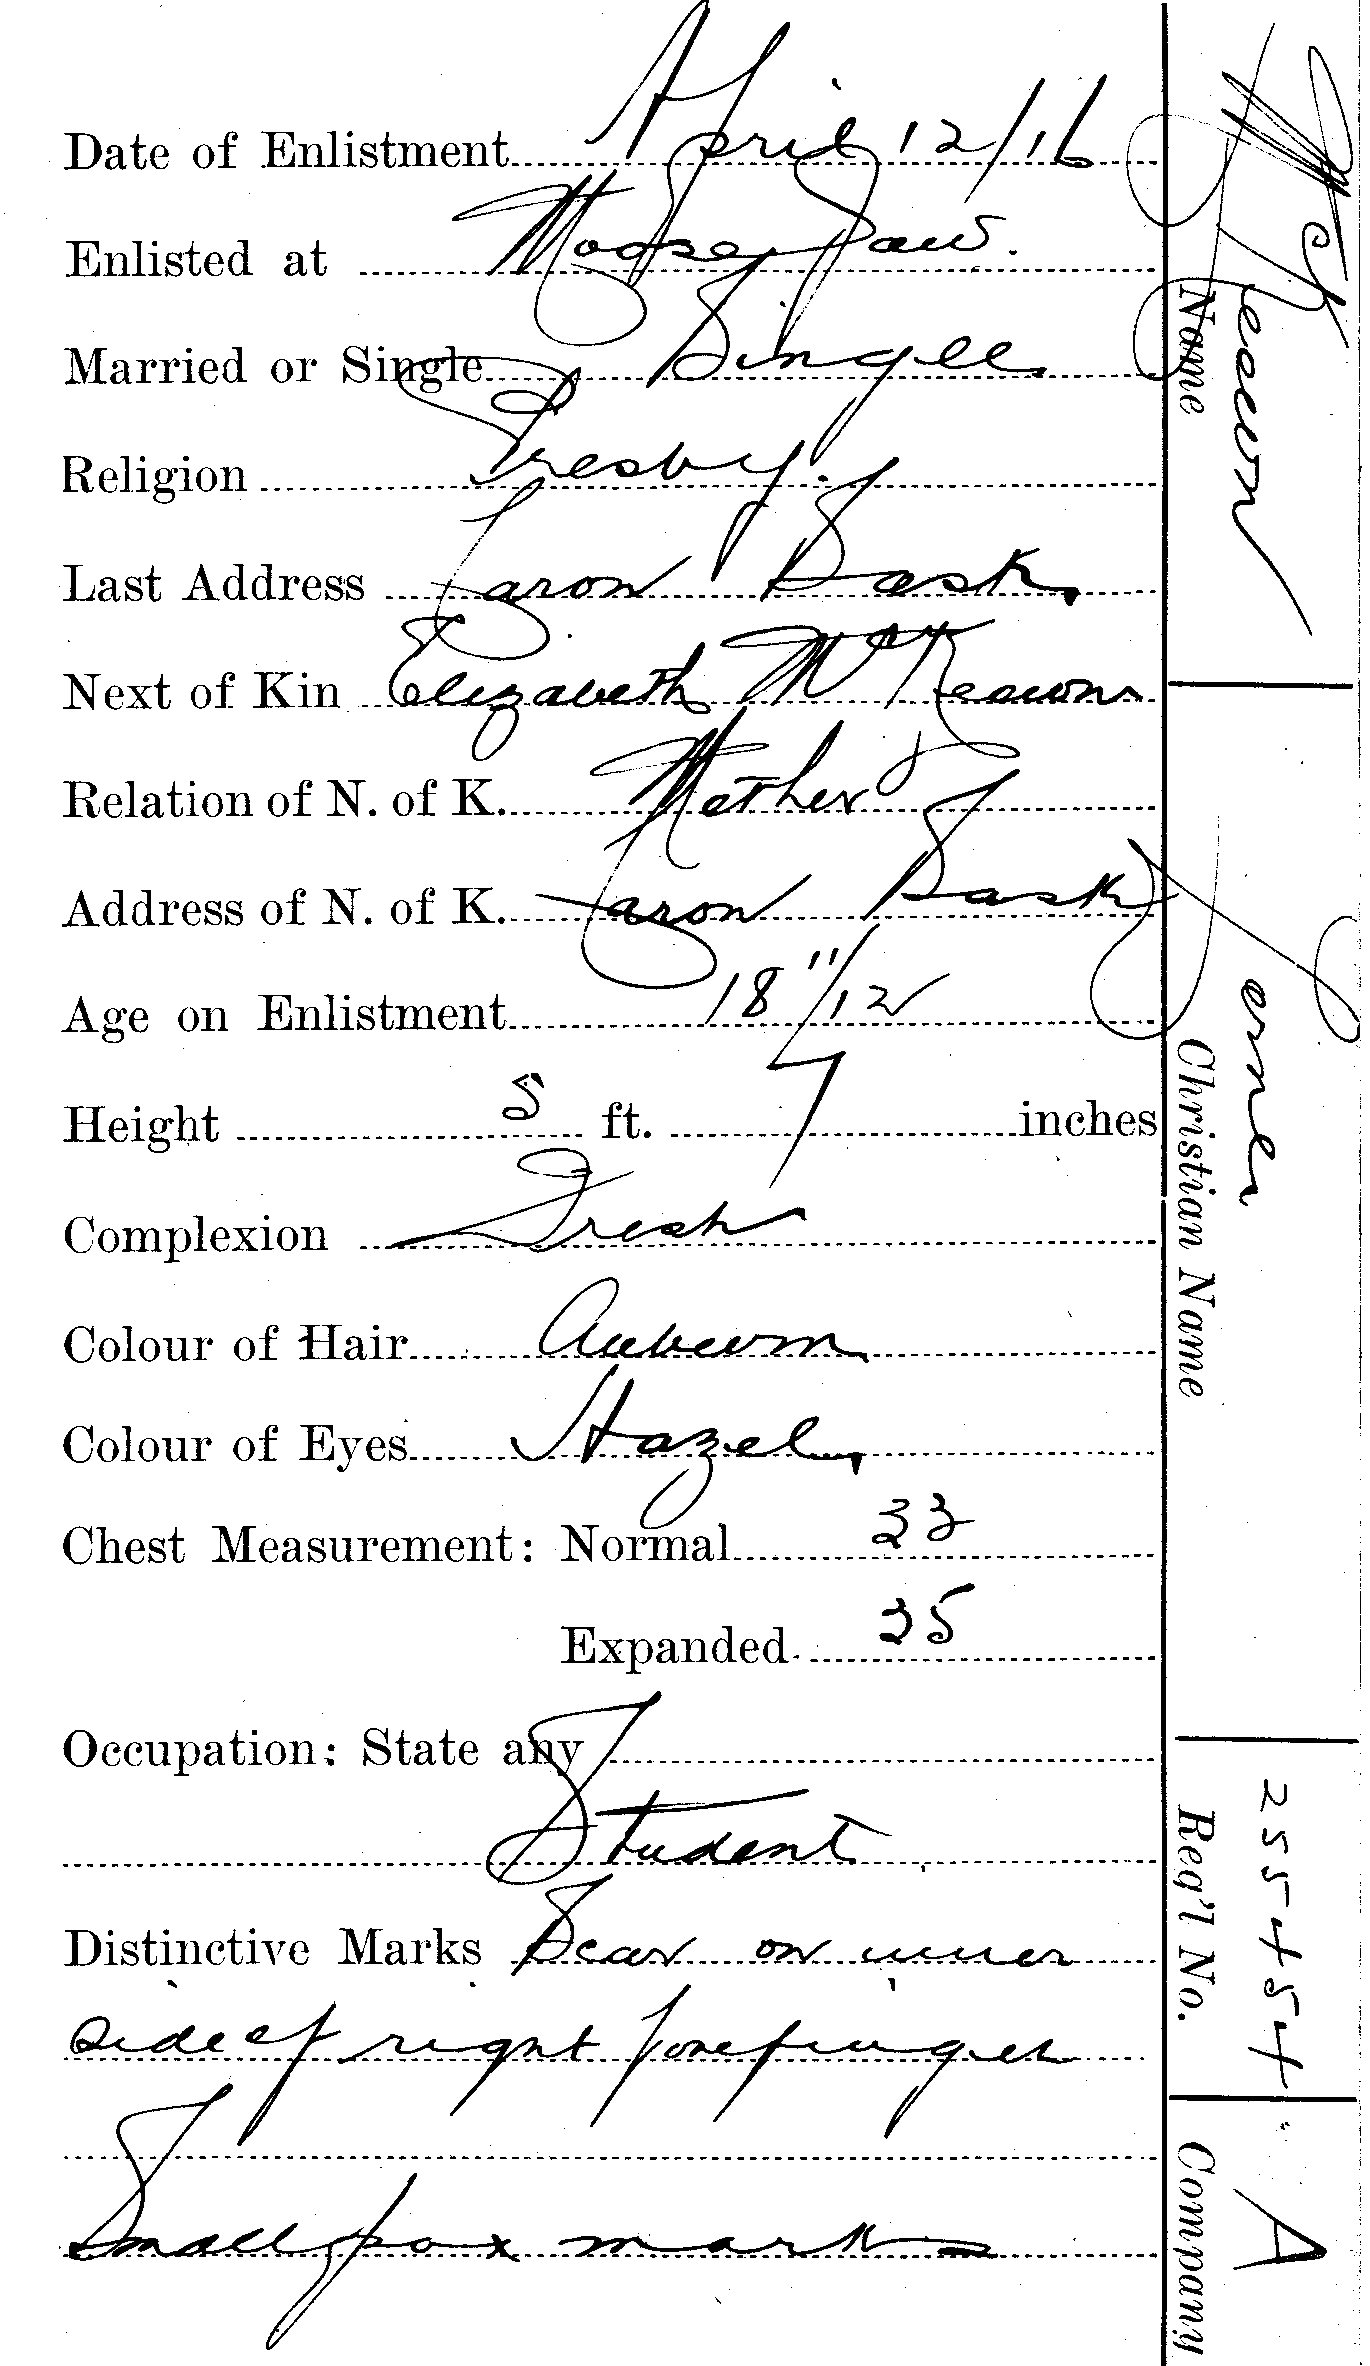 Date of Enlistment April 12/16
Enlisted at Moose Jaw.
Married or Single Single
Religion Presby.
Last Address Caron Sask.
Next of Kin Elizabeth McKeown
Relation of N. of K. Mother
Address of N. of K. Caron Sask
Age on Enlistment 18 11/12
Height 5 ft. 7 inches
Complexion Fresh
Colour of Hair Auburn
Colour of Eyes Hazel
Chest Measurement: Normal 33
Expanded 35
Occupation: State any
Student
Distinctive Marks Scar on inner
side of right forefinger
Small pox marks
McKeown
Name
Verner
Christian Name
255454
Reg'l No.
A
Company